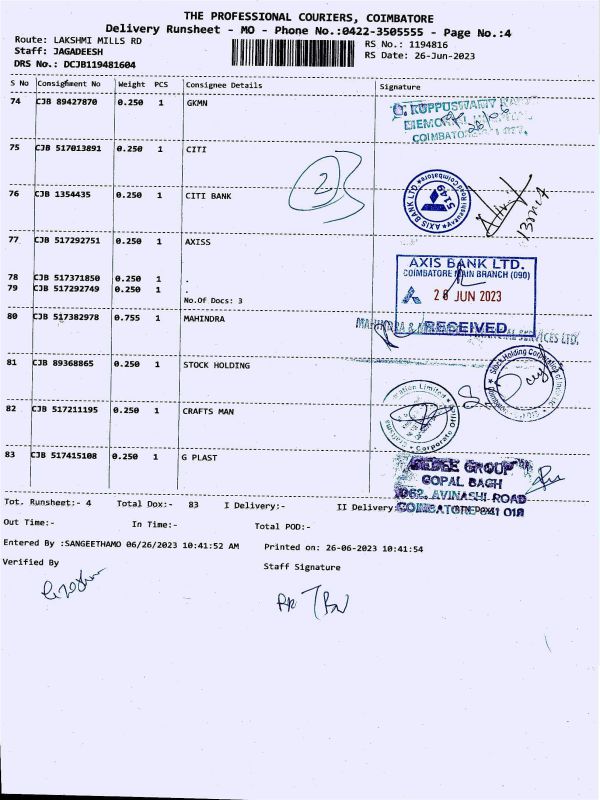 THE PROFESSIONAL COURIERS, COIMBATORE
Delivery Runsheet - MO - Phone No.:0422-3505555 - Page No.:4
Route: LAKSHMI MILLS RD
RS No.: 1194816
Staff: JAGADEESH
RS Date: 26-Jun-2023
DRS No.: DCJB119481604
S No Consignment No Weight PCS Consignee Details Signature
74 CJB 89427870 0.250 1 GKMN
G. KUPPUSWAMY
MEMORIAL
COIMBATORE
75 CJB 517013891 0.250 1 CITI
2
76 CJB 1354435 0.250 1 CITI BANK
AXIS BANK LTD
5149
77 CJB 517292751 0.250 1 AXISS
AXIS BANK LTD.
COIMBATORE MAIN BRANCH (090)
78 CJB 517371850 0.250 1 .
79 CJB 517292749 0.250 1 .
26 JUN 2023
No.Of Docs: 3
80 CJB 517382978 0.755 1 MAHINDRA
RECEIVED
MAHINDRA & SERVICES LTD.
81 CJB 89368865 0.250 1 STOCK HOLDING
Stock Holding Corporation of
82 CJB 517211195 0.250 1 CRAFTS MAN
Limited
Corporate Office
83 CJB 517415108 0.250 1 G PLAST
GROUP
GOPAL BAGH
1062, AVINASHI ROAD
COIMBATORE-641 018
Tot. Runsheet:- 4 Total Dox:- 83 I Delivery:- II Delivery
Out Time:- In Time:- Total POD:-
Entered By :SANGEETHAMO 06/26/2023 10:41:52 AM Printed on: 26-06-2023 10:41:54
Verified By Staff Signature